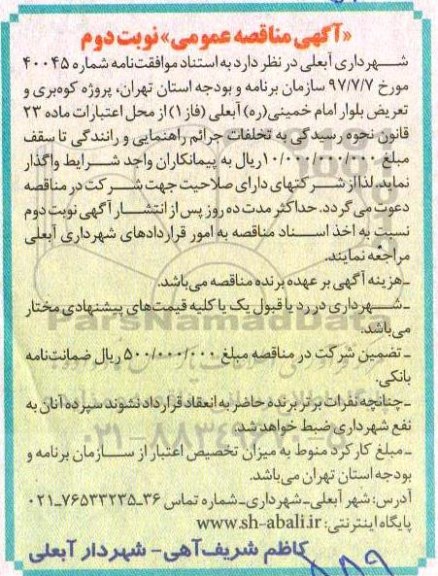 «آگهی مناقصه عمومی» نوبت دوم
شهرداری آبعلی در نظر دارد به استناد موافقت‌نامه شماره ۴۰۰۴۵
مورخ ۹۷/۷/۷ سازمان برنامه و بودجه استان تهران، پروژه کوه‌بری و
تعریض بلوار امام خمینی(ره) آبعلی (فاز۱) از محل اعتبارات ماده ۲۳
قانون نحوه رسیدگی به تخلفات جرائم راهنمایی و رانندگی تا سقف
مبلغ ۱۰/۰۰۰/۰۰۰/۰۰۰ریال به پیمانکاران واجد شرایط واگذار
نماید. لذا از شرکتهای دارای صلاحیت جهت شرکت در مناقصه
دعوت می‌گردد. حداکثر مدت ده روز پس از انتشار آگهی نوبت دوم
نسبت به اخذ اسناد مناقصه به امور قراردادهای شهرداری آبعلی
مراجعه نمایند.
ـ هزینه آگهی بر عهده برنده مناقصه می‌باشد.
ـ شهرداری در رد یا قبول یک یا کلیه قیمت‌های پیشنهادی مختار
می‌باشد.
ParsNamadData
ـ تضمین شرکت در مناقصه مبلغ ۵۰۰/۰۰۰/۰۰۰ ریال ضمانت‌نامه
بانکی.
ـ چنانچه نفرات برتر برنده حاضر به انعقاد قرارداد نشوند سپرده آنان به
نفع شهرداری ضبط خواهد شد.
۰۲۱-۸۸۳۴۹۶۷۰-۵
ـ مبلغ کارکرد منوط به میزان تخصیص اعتبار از سازمان برنامه و
بودجه استان تهران می‌باشد.
آدرس: شهر آبعلی ـ شهرداری ـ شماره تماس ۳۶ـ۷۶۵۳۳۲۳۵ـ۰۲۱
پایگاه اینترنتی: www.sh-abali.ir
کاظم شریف‌آهی- شهردار آبعلی